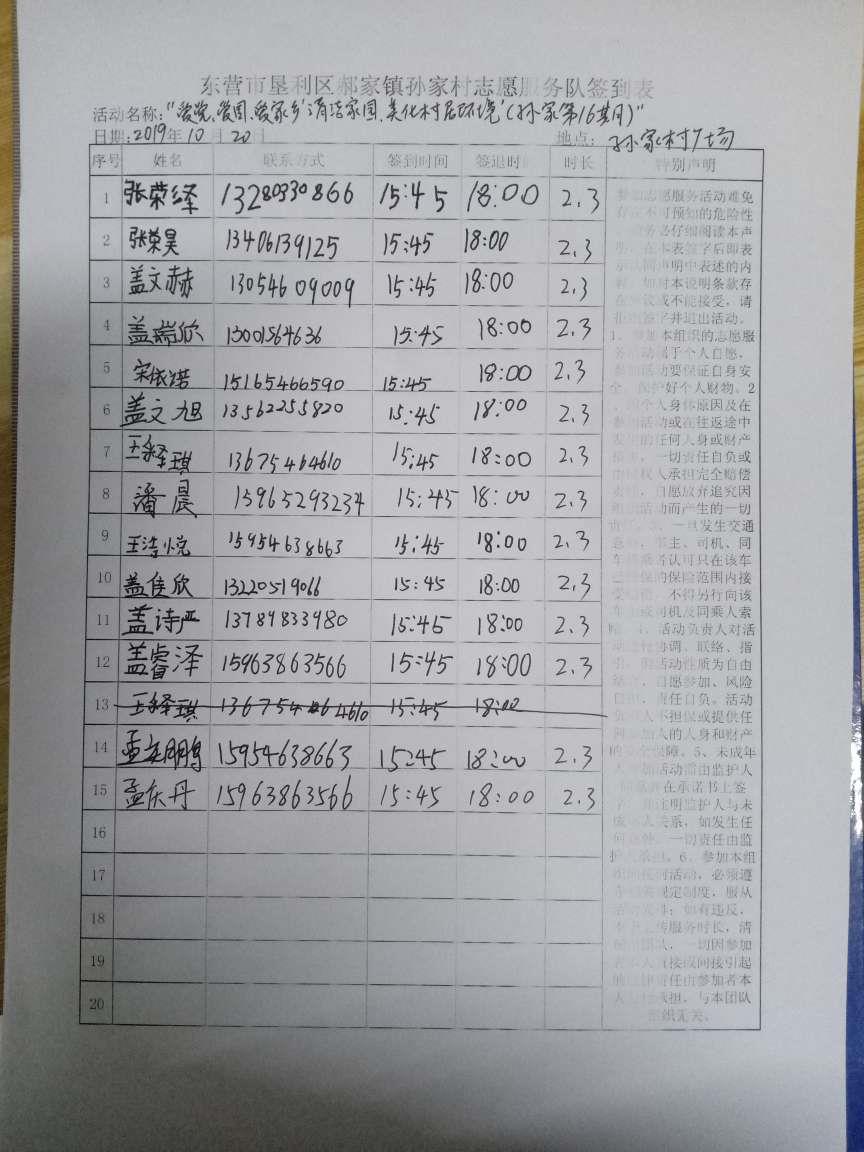 东营市垦利区郝家镇孙家村志愿服务队签到表
活动名称："爱党、爱国、爱家乡'清洁家园、美化村居环境'(孙家第16期)"
日期:2019年10月20日 地点: 孙家村广场
序号 姓名 联系方式 签到时间 签退时间 时长 特别声明
1 张荣绎 13280330866 15:45 18:00 2.3
2 张荣昊 13406139125 15:45 18:00 2.3
3 盖文赫 13054609009 15:45 18:00 2.3
4 盖瑞欣 13001564636 15:45 18:00 2.3
5 宋依诺 15165466590 15:45 18:00 2.3
6 盖文旭 13562255820 15:45 18:00 2.3
7 王绎琪 13675464610 15:45 18:00 2.3
8 潘晨 15965293234 15:45 18:00 2.3
9 王浩悦 15954638663 15:45 18:00 2.3
10 盖佳欣 13220519066 15:45 18:00 2.3
11 盖诗严 13789833980 15:45 18:00 2.3
12 盖睿泽 15963863566 15:45 18:00 2.3
13 王绎琪 15:45 18:00
14 鹏 15954638663 15:45 18:00 2.3
15 孟庆丹 15963863566 15:45 18:00 2.3
16
17
18
19
20
参加志愿服务活动难免
存在不可预知的危险性
，请务必仔细阅读本声
明，在本表签字后即表
示认同声明中表述的内
容，如对本说明条款存
在异议或不能接受，请
拒绝签字并退出活动。
1、参加本组织的志愿服
务活动属于个人自愿，
参加活动要保证自身安
全，保护好个人财物。2
、因个人身体原因及在
参加活动或在往返途中
发生的任何人身或财产
损失，一切责任自负或
由侵权人承担完全赔偿
责任，自愿放弃追究因
组织活动而产生的一切
责任。3、一旦发生交通
意外，事主、司机、同
车乘客认可只在该车
已投保的保险范围内接
受赔偿，不得另行向该
车主或司机及同乘人索
赔。4、活动负责人对活
动进行协调、联络、指
引，的活动性质为自由
结合、自愿参加、风险
自担、责任自负。活动
负责人不担保或提供任
何参加人的人身和财产
的安全保障。5、未成年
人参加活动需由监护人
同意并在承诺书上签
字，并注明监护人与未
成年人关系，如发生任
何意外，一切责任由监
护人承担。6、参加本组
织的任何活动，必须遵
守相关规定制度，服从
活动安排；如有违反，
不予上传服务时长，清
除出团队，一切因参加
者本人直接或间接引起
的法律责任由参加者本
人自行承担，与本团队
组织无关。